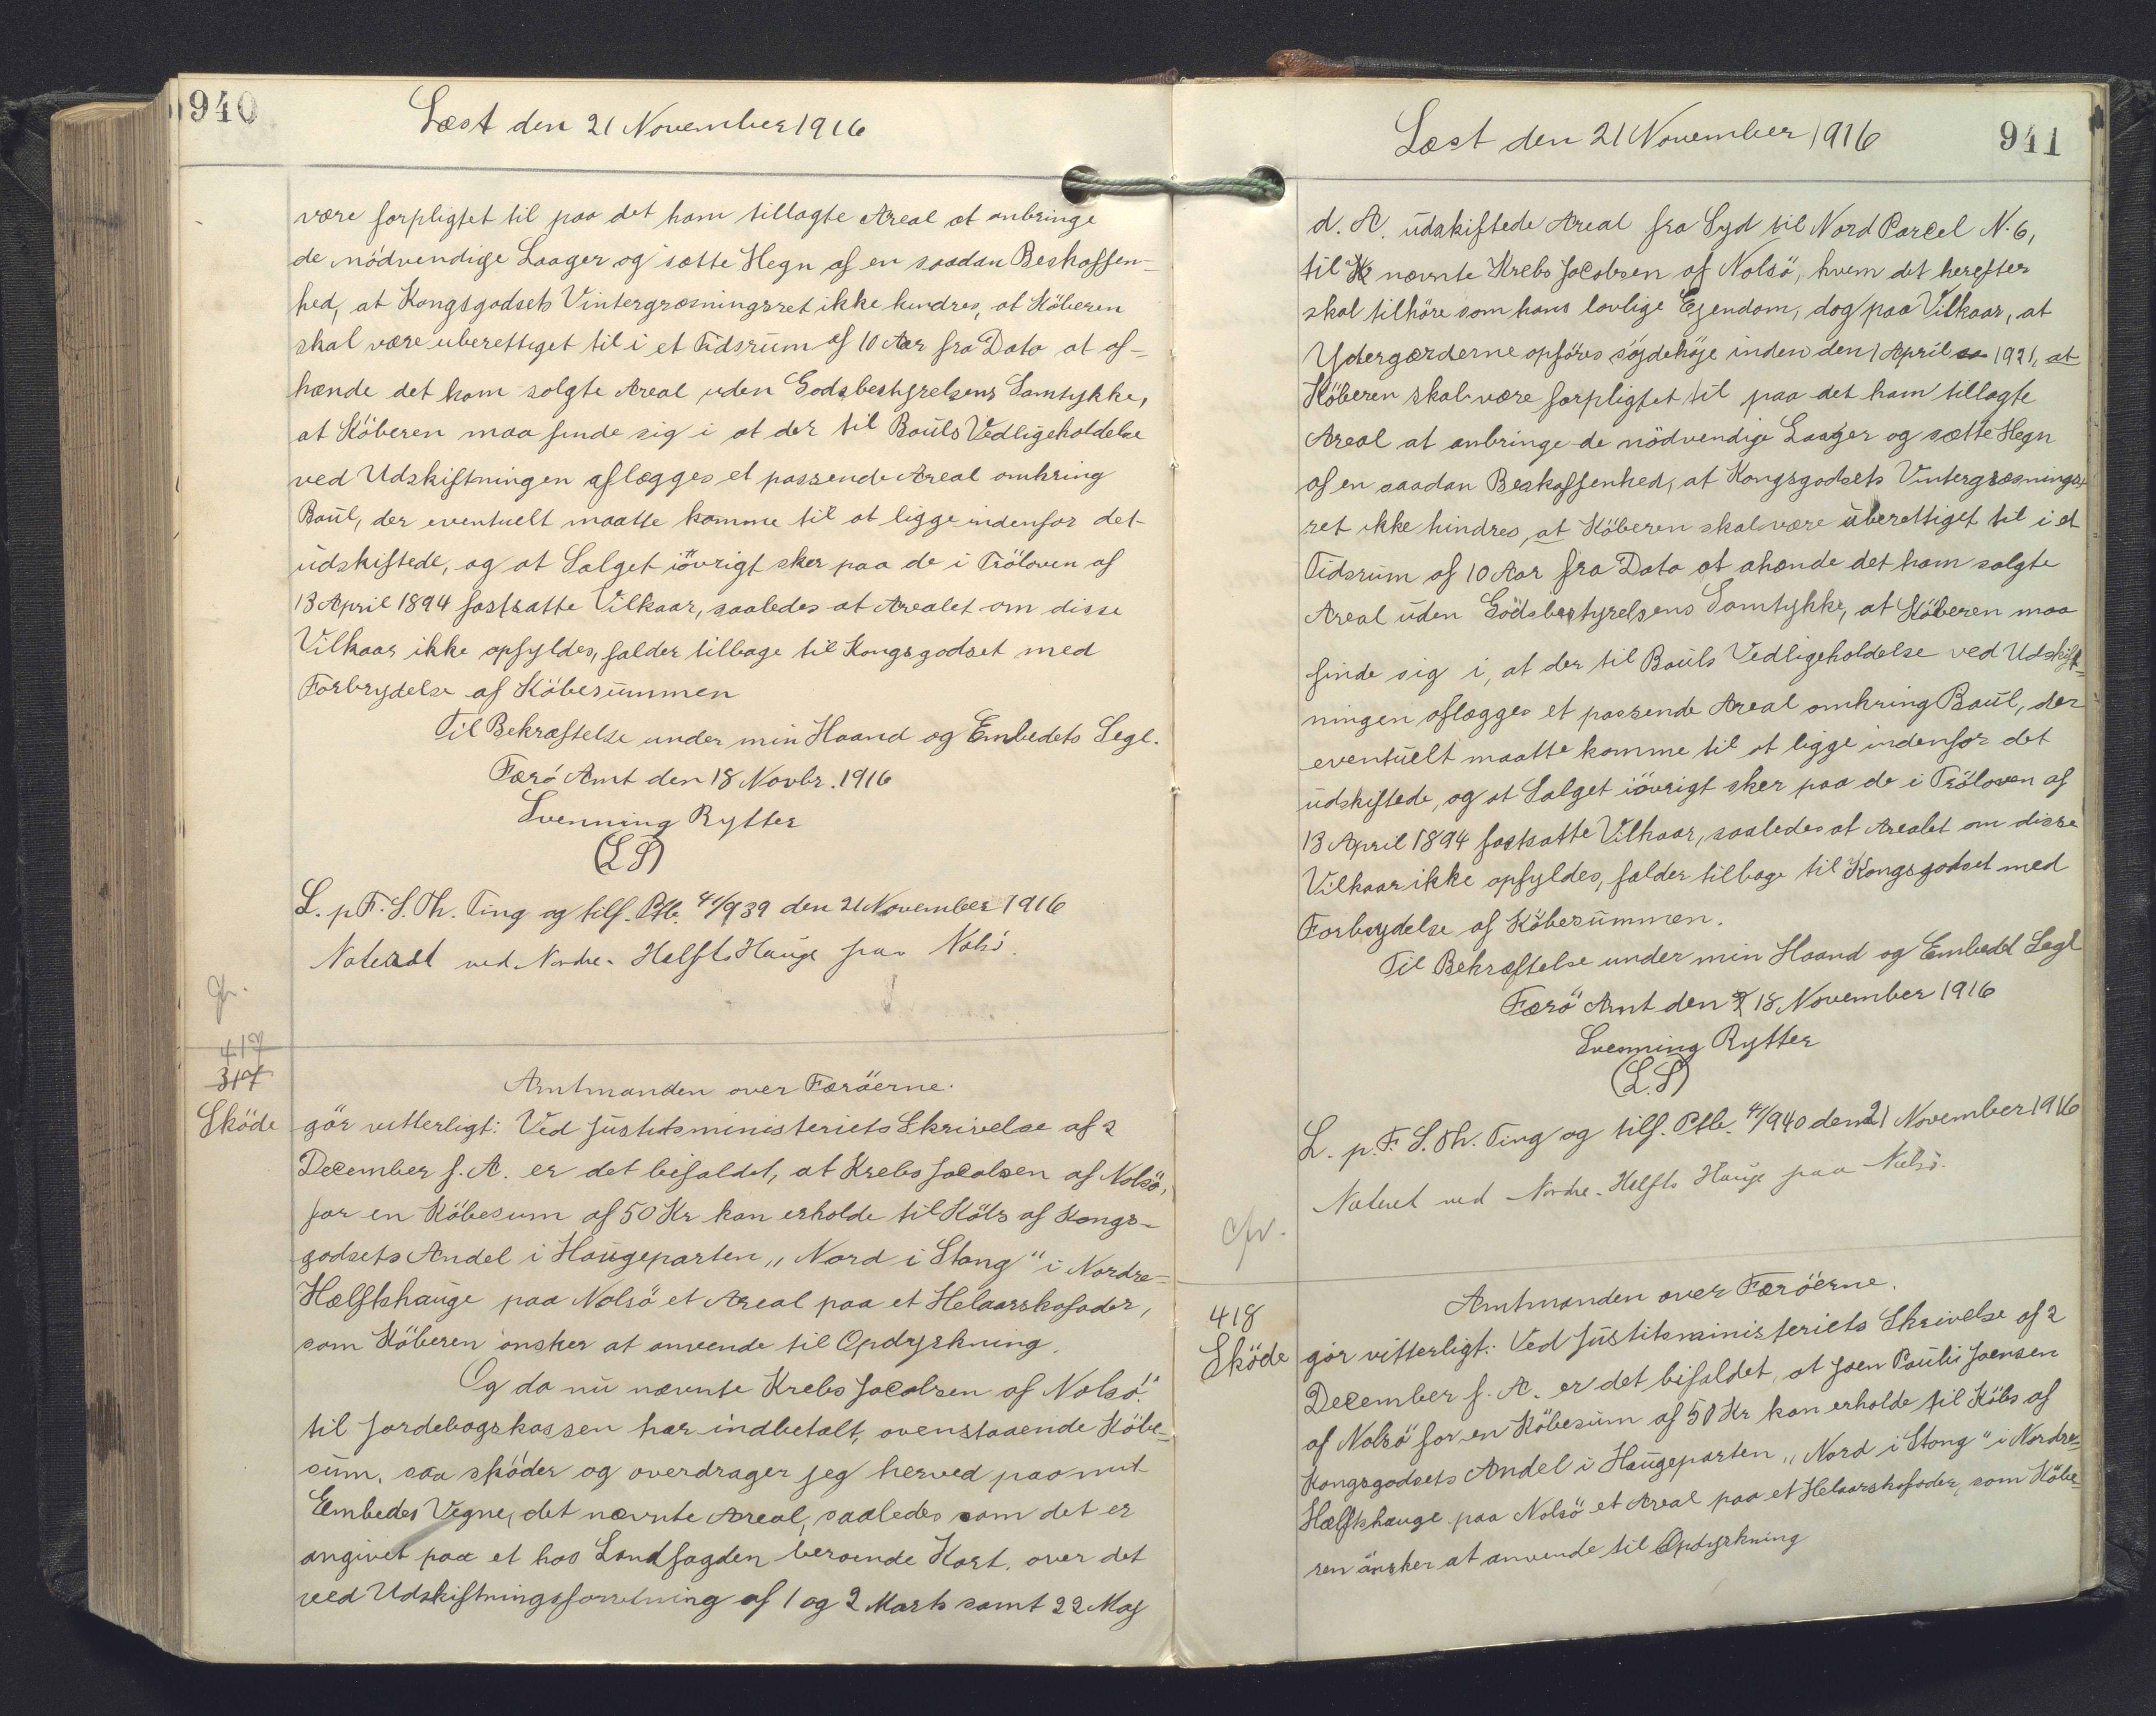 940
Læst den 21 November 1916
være forpligtet til paa det ham tillagte Areal at anbringe
de nödvendige Laager og sætte Hegn af en saadan Beskaffen-
hed, at Kongsgodsets Vintergræsningsret ikke hindres, at Köberen
skal være uberettiget til i et Tidsrum af 10 Aar fra Dato at af-
hænde det ham solgte Areal uden Godsbestyrelsens Samtykke,
at Köberen maa finde sig i at der til Bouls Vedligeholdelse
ved Udskiftningen aflægges et passende Areal omkring
Boul, der eventuelt maatte komme til at ligge indenfor det
udskiftede, og at Salget iövrigt sker paa de i Tröloven af
13 April 1894 fastsatte Vilkaar, saaledes at Arealet om disse
Vilkaar ikke opfyldes, falder tilbage til Kongsgodset med
Forbrydelse af Köbesummen
Til Bekræftelse under min Haand og Embedets Segl.
Færö Amt den 18 Novbr. 1916
Svenning Rytter
(L S)
L. p F. S. Th. Ting og tilf. Ptb. 41/939 den 21 November 1916
Noteret ved Nordre-Helfts Hauge paa Nolsö.
cfr.
417
317
Sköde
Amtmanden over Færöerne.
gör vitterligt: Ved Justitsministeriets Skrivelse af 2
December f. A. er det bifaldet, at Krebs Jacobsen af Nolsö,
for en Köbesum af 50 Kr kan erholde til Köbs af Kongs-
godsets Andel i Haugeparten "Nord i Stong" i Nordre-
Hælftshauge paa Nolsö et Areal paa et Helaarskofoder,
som Köberen önsker at anvende til Opdyrkning.
Og da nu nævnte Krebs Jacobsen af Nolsö
til Jordebogskassen har indbetalt, ovenstaaende Köbe-
sum, saa sköder og overdrager jeg herved paa mit
Embedes Vegne, det nævnte Areal, saaledes som det er
angivet paa et hos Landfogden beroende Kort, over det
ved Udskiftningsforretning af 1 og 2 Marts samt 22 Maj
Læst den 21 November 1916
941
d. A. udskiftede Areal fra Syd til Nord Parcel N. 6,
til K nævnte Krebs Jacobsen af Nolsö, hvem det herefter
skal tilhöre som hans lovlige Ejendom, dog paa Vilkaar, at
Ydergærderne opföres söjdehöje inden den 1 April 1921, at
Köberen skal være forpligtet til paa det ham tillagte
Areal at anbringe de nödvendige Laager og sætte Hegn
af en saadan Beskaffenhed, at Kongsgodsets Vintergræsnings-
ret ikke hindres, at Köberen skal være uberettiget til i et
Tidsrum af 10 Aar fra Dato at ahænde det ham solgte
Areal uden Godsbestyrelsens Samtykke, at Köberen maa
finde sig i, at der til Bouls Vedligeholdelse ved Udskift-
ningen aflægges et passende Areal omkring Boul, der
eventuelt maatte komme til at ligge indenfor det
udskiftede, og at Salget iövrigt sker paa de i Tröloven af
13 April 1894 fastsatte Vilkaar, saaledes at Arealet om disse
Vilkaar ikke opfyldes, falder tilbage til Kongsgodset med
Forbrydelse af Köbesummen.
Til Bekræftelse under min Haand og Embedd Segl
Færö Amt den 18 November 1916
Svenning Rytter
(L. S)
L. p. F. S. Th. Ting og tilf. Ptb. 41/940 den 21 November 1916
Noteret ved Nordre-Helfts Hauge paa Nolsö.
cfr.
418
Sköde
Amtmanden over Færöerne.
gör vitterligt: Ved Justitsministeriets Skrivelse af 2
December f. A. er det bifaldet, at Joen Pauli Joensen
af Nolsö for en Köbesum af 50 Kr kan erholde til Köbs af
Kongsgodsets Andel i Haugeparten "Nord i Stong" i Nordre-
Hælftshauge paa Nolsö et Areal paa et Helaarskofoder, som Köbe-
ren önsker at anvende til Opdyrkning